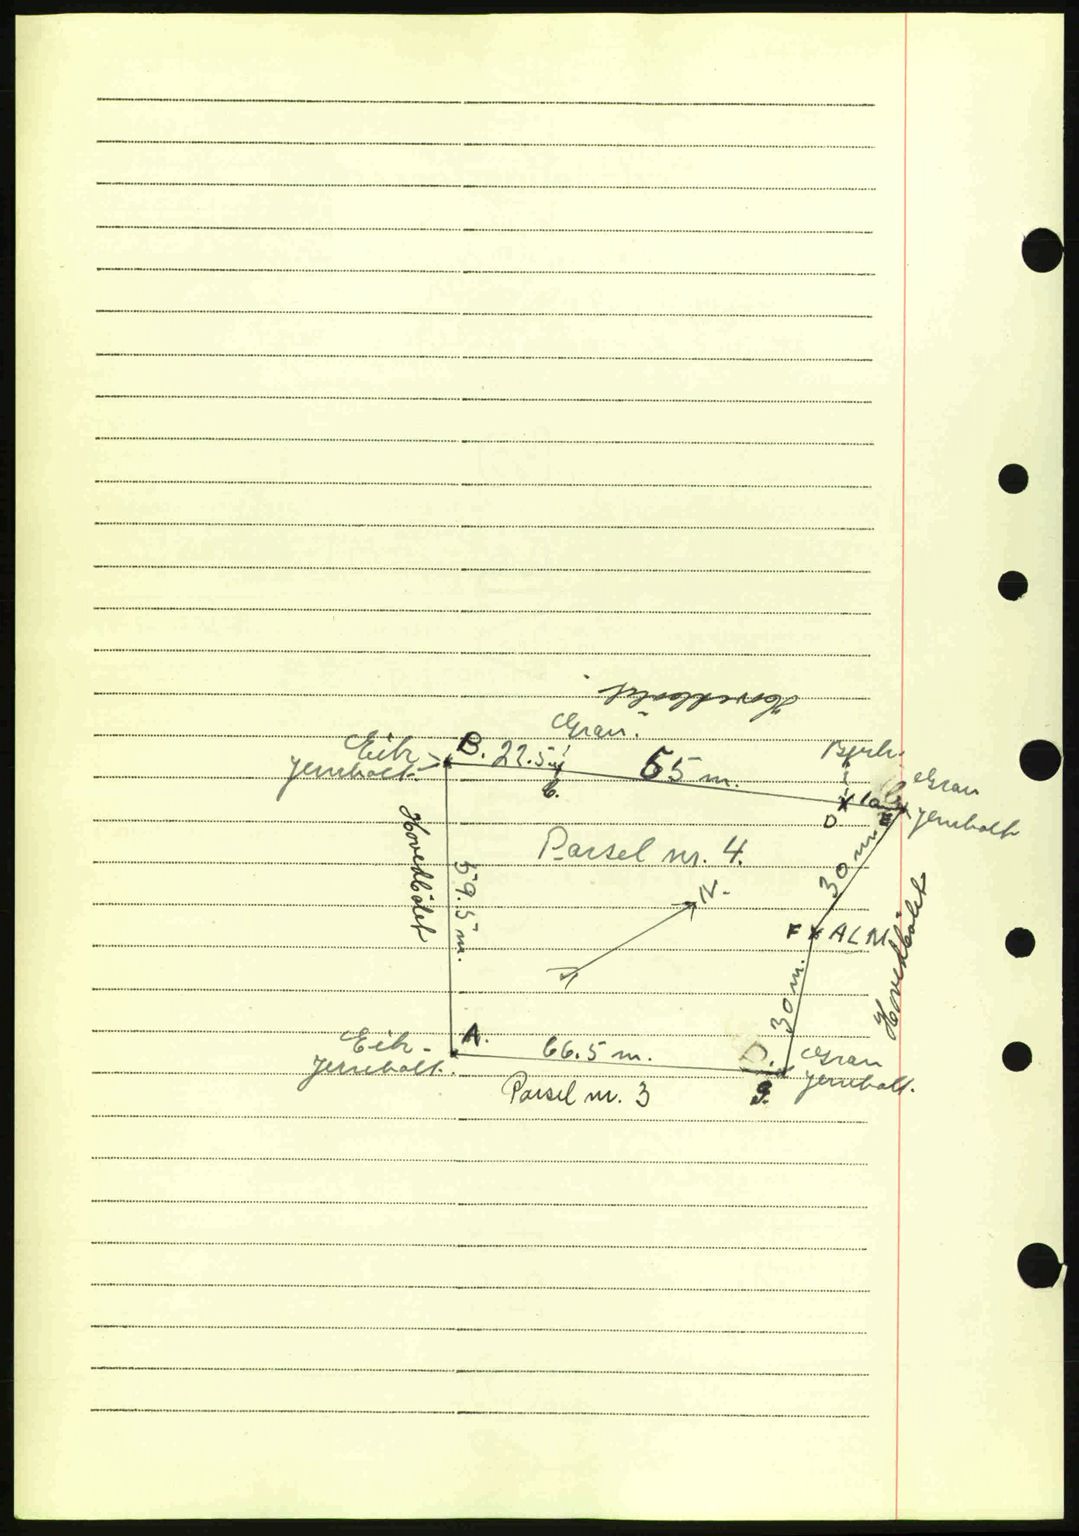 Hovedbölet
Gran.
Bjerk.
Eik
jernbolt.
B. 22.5 m
C.
55 m.
D
10 m
E
Gran
jernbolt
Hovedbölet
59.5 m.
Parsel nr. 4.
30 m.
N.
S
F x ALM
Hovedbölet
30 m.
Eik.
jernbolt.
A.
66.5 m.
D.
Gran
jernbolt.
Parsel nr. 3